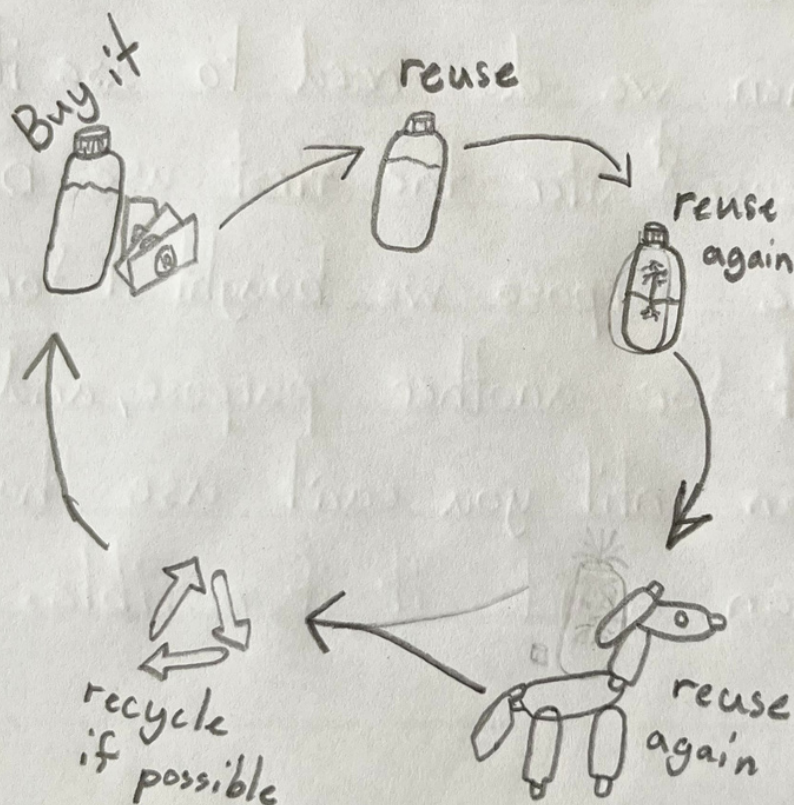 Buy it
reuse
reuse
again
reuse
again
recycle
if possible